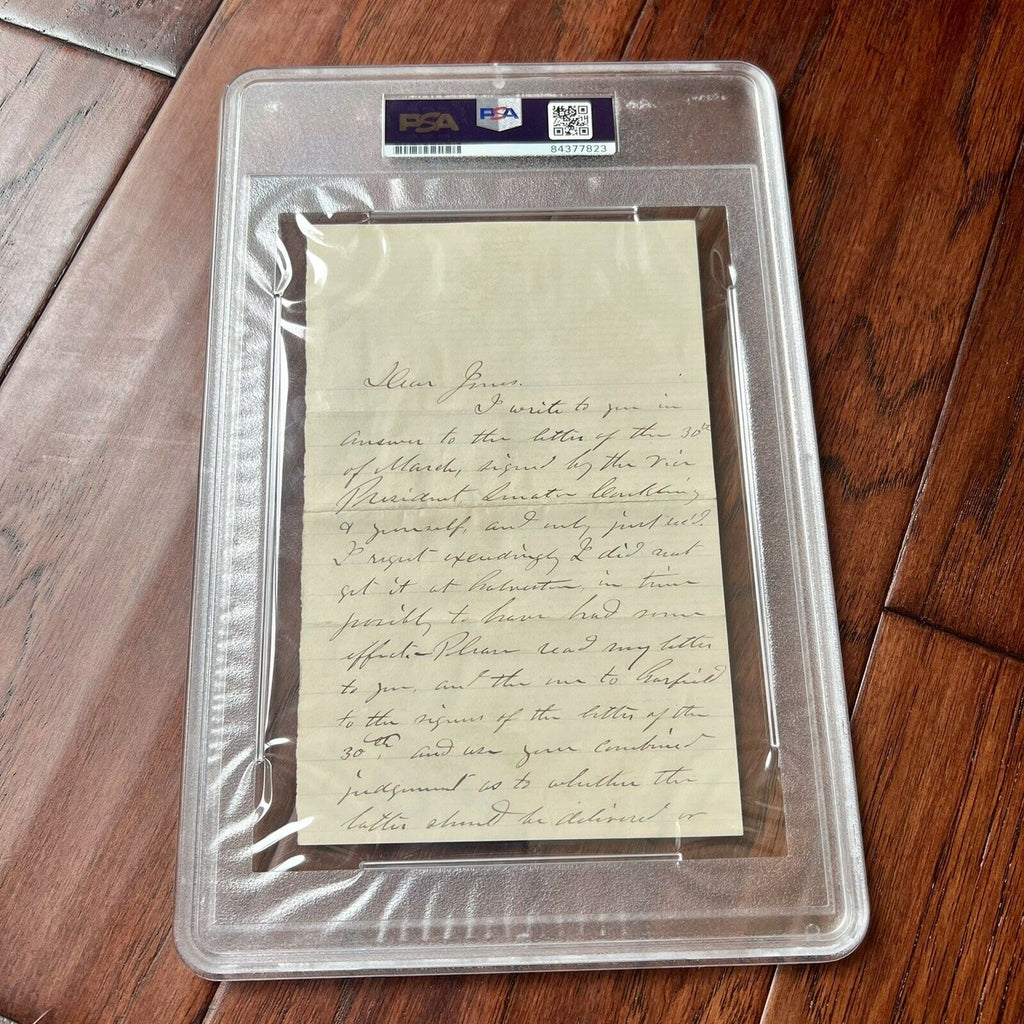 PSA
PSA
84377823
Dear Jones.
I write to you in
answer to the letter of the 30th
of March, signed by the Vice
President Senator Conkling
& yourself, and only just rec'd.
I regret exceedingly I did not
get it at Galveston, in time
possibly to have had some
effect. – Please read my letter
to you, and the one to Garfield
to the signers of the letter of the
30th, and use your combined
judgment as to whether the
latter should be delivered or